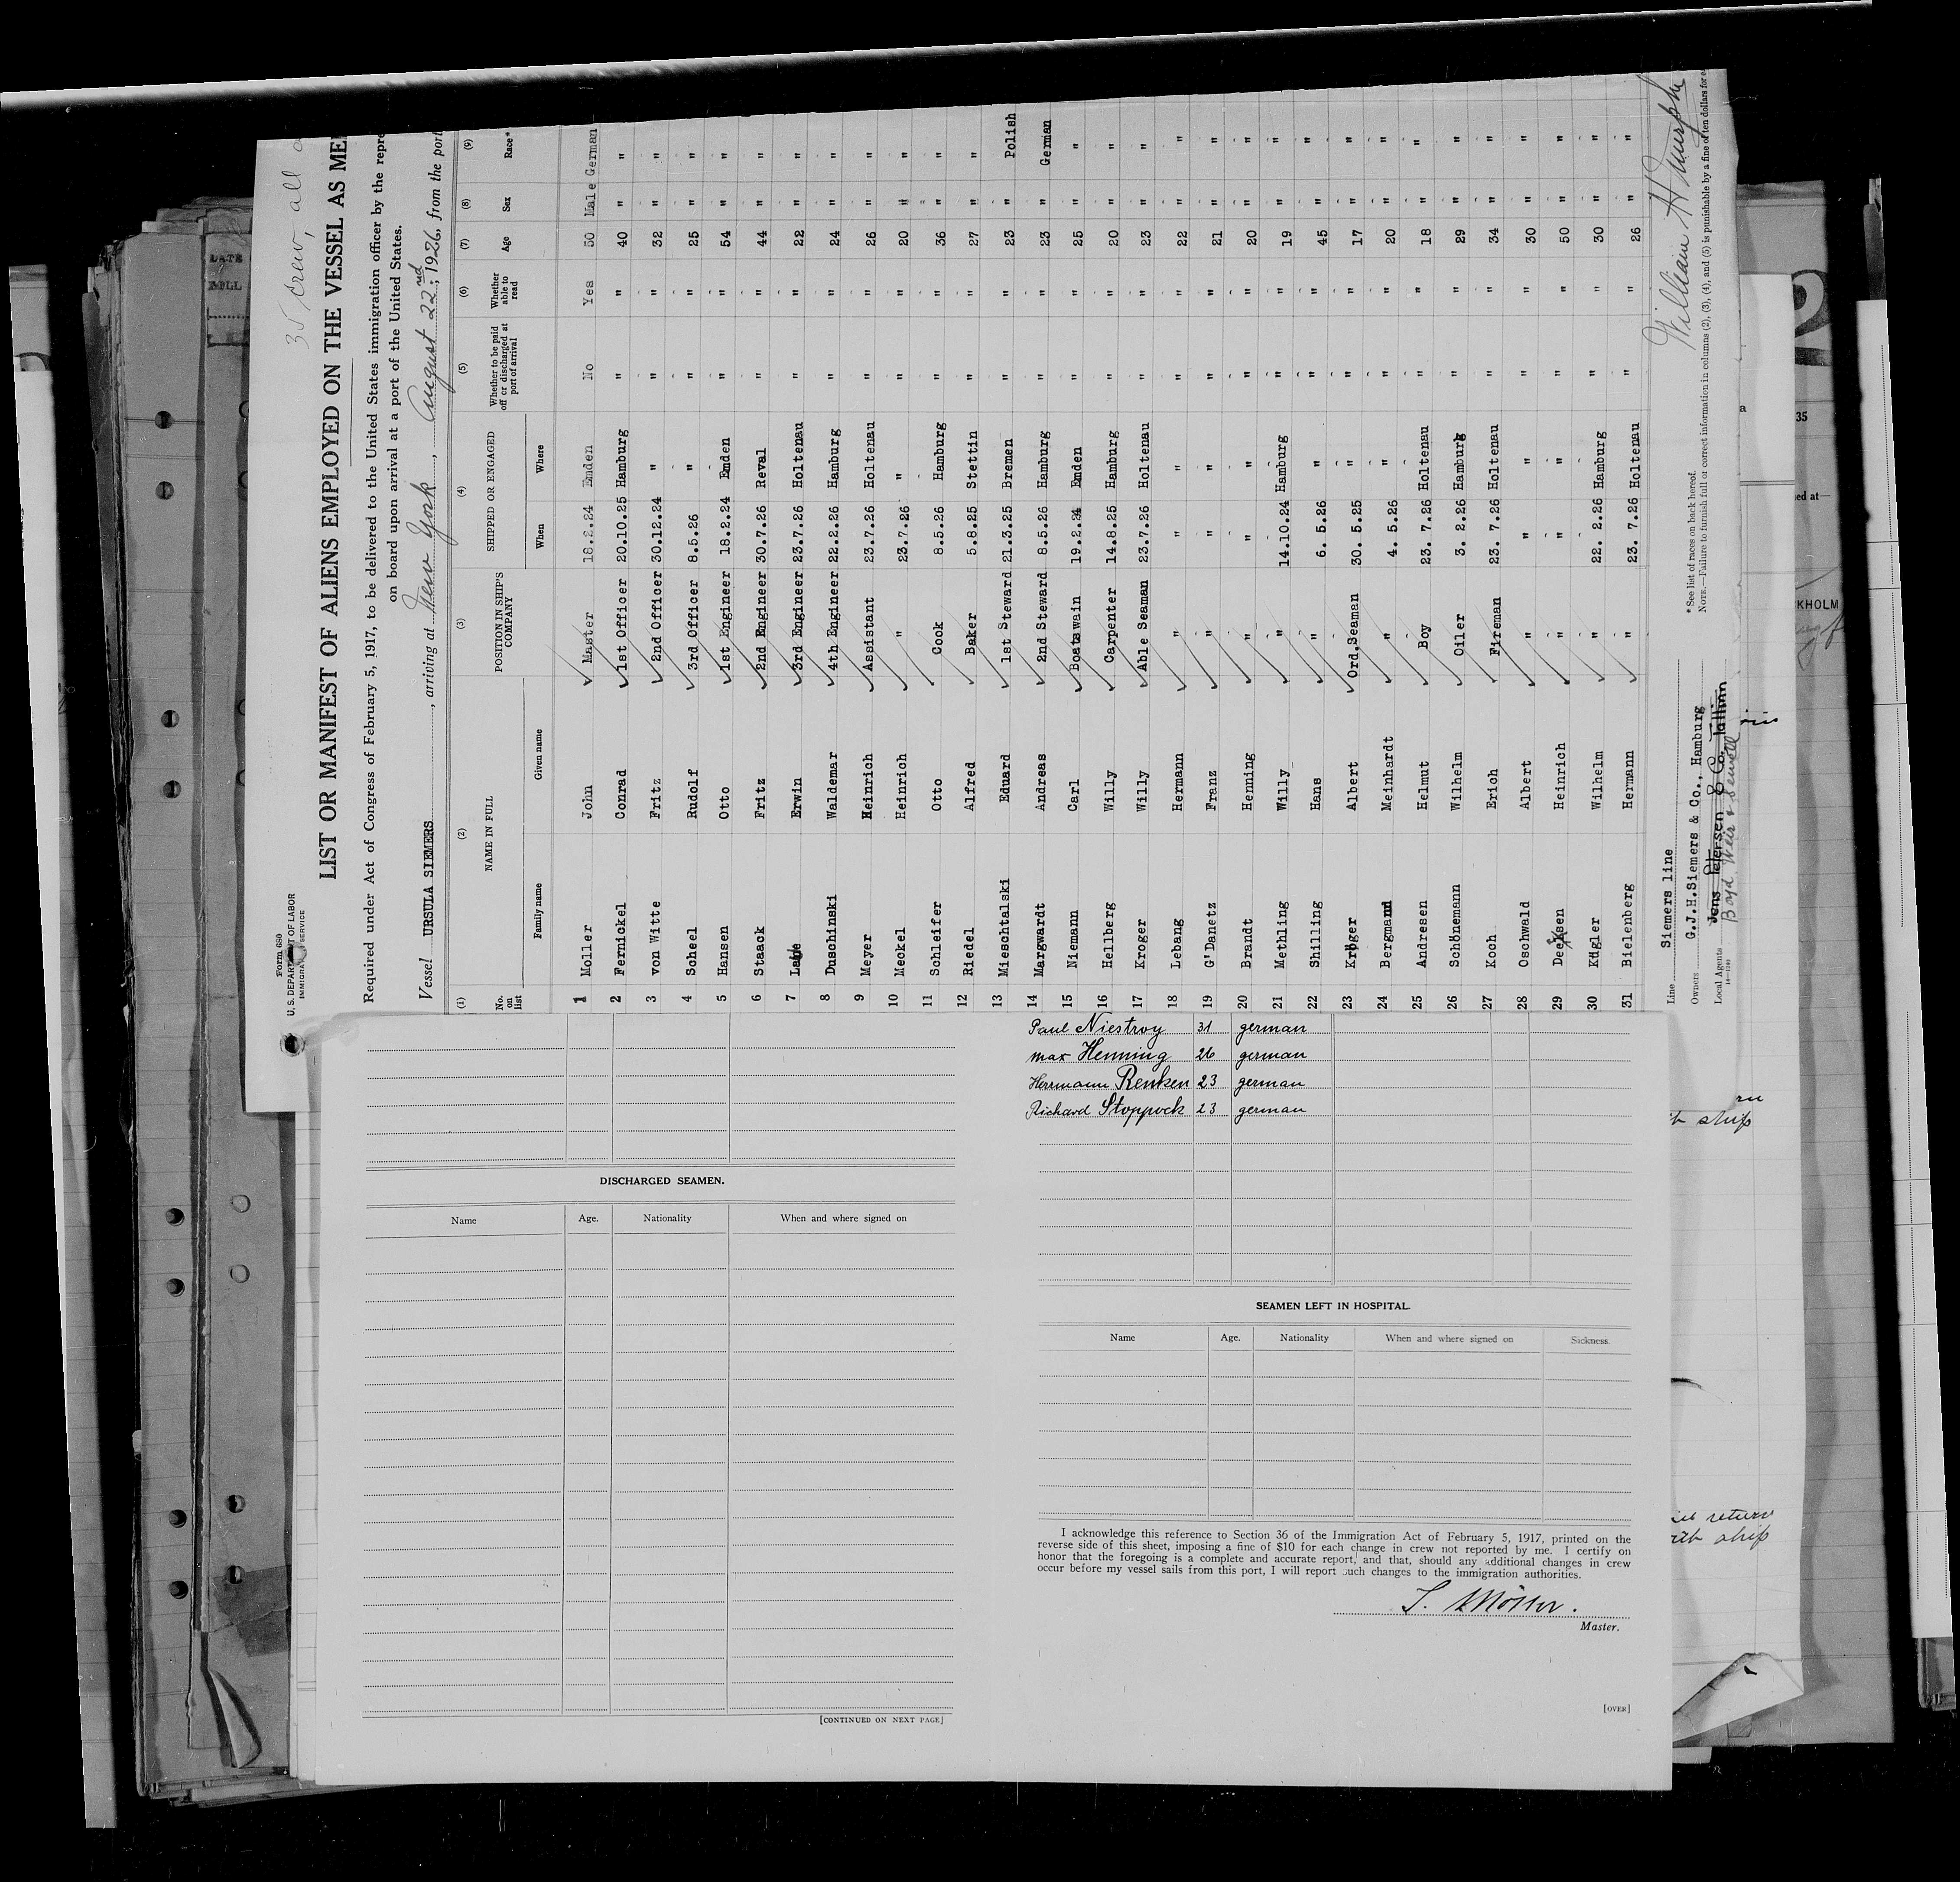 35 crew, all
Form 680
U. S. DEPARTMENT OF LABOR
IMMIGRATION SERVICE
LIST OR MANIFEST OF ALIENS EMPLOYED ON THE VESSEL AS
Required under Act of Congress of February 5, 1917, to be delivered to the United States immigration officer by the
on board upon arrival at a port of the United States.
Vessel URSULA SIEMERS, arriving at New York, August 22nd, 1926, from the port
(1) (2) (3) (4) (5) (6) (7) (8) (9)
No. on list NAME IN FULL POSITION IN SHIP'S COMPANY SHIPPED OR ENGAGED Whether to be paid off or discharged at port of arrival Whether able to read Age Sex Race*
Family name Given name When Where
1 Moller John Master 18.2.24 Emden No Yes 50 Male German
2 Fernickel Conrad 1st Officer 20.10.25 Hamburg " " 40 " "
3 von Witte Fritz 2nd Officer 30.12.24 " " " 32 " "
4 Scheel Rudolf 3rd Officer 8.5.26 " " " 25 " "
5 Hansen Otto 1st Engineer 18.2.24 Emden " " 54 " "
6 Staack Fritz 2nd Engineer 30.7.26 Reval " " 44 " "
7 Erwin 3rd Engineer 23.7.26 Holtenau " " 22 " "
8 Duschinski Waldemar 4th Engineer 22.2.26 Hamburg " " 24 " "
9 Meyer Heinrich Assistant 23.7.26 Holtenau " " 26 " "
10 Meckel Heinrich " 23.7.26 " " " 20 " "
11 Schleifer Otto Cook 8.5.26 Hamburg " " 36 " "
12 Riedel Alfred Baker 5.8.25 Stettin " " 27 " "
13 Mieschtalski Eduard 1st Steward 21.3.25 Bremen " " 23 " Polish
14 Margwardt Andreas 2nd Steward 8.5.26 Hamburg " " 23 " German
15 Niemann Carl Boatswain 19.2.24 Emden " " 25 " "
16 Hellberg Willy Carpenter 14.8.25 Hamburg " " 20 " "
17 Kroger Willy Able Seaman 23.7.26 Holtenau " " 23 " "
18 Lebang Hermann " " " " " 22 " "
19 G'Danetz Franz " " " " " 21 " "
20 Brandt Henning " " " " " 20 " "
21 Methling Willy " 14.10.24 Hamburg " " 19 " "
22 Shilling Hans " 6. 5.26 " " " 45 " "
23 Kröger Albert Ord.Seaman 30. 5.25 " " " 17 " "
24 Bergmann Meinhardt " 4. 5.26 " " " 20 " "
25 Andresen Helmut Boy 23. 7.26 Holtenau " " 18 " "
26 Schönemann Wilhelm Oiler 3. 2.26 Hamburg " " 29 " "
27 Koch Erich Fireman 23. 7.26 Holtenau " " 34 " "
28 Oschwald Albert " " " " " 30 " "
29 Heinrich " " " " " 50 " "
30 Kügler Wilhelm " 22. 2.26 Hamburg " " 30 " "
31 Bielenberg Hermann " 23. 7.26 Holtenau " " 26 " "
Line Siemers line
Owners G.J.H.Siemers & Co., Hamburg
Local Agents Jens Petersen & Co. Tallinn
Boyd Weir & Sewell
William H Murphy
* See list of races on back hereof.
NOTE.—Failure to furnish full or correct information in columns (2), (3), (4), and (5) is punishable by a fine of ten dollars for
Paul Niestroy 31 german
max Henning 26 german
Herrmann Renken 23 german
Richard Stoppock 23 german
DISCHARGED SEAMEN.
Name Age. Nationality When and where signed on
[CONTINUED ON NEXT PAGE]
SEAMEN LEFT IN HOSPITAL.
Name Age. Nationality When and where signed on Sickness
I acknowledge this reference to Section 36 of the Immigration Act of February 5, 1917, printed on the
reverse side of this sheet, imposing a fine of $10 for each change in crew not reported by me. I certify on
honor that the foregoing is a complete and accurate report, and that, should any additional changes in crew
occur before my vessel sails from this port, I will report such changes to the immigration authorities.
J. Möller.
Master.
[OVER]
35
ed at—
KHOLM
ship
return
ship